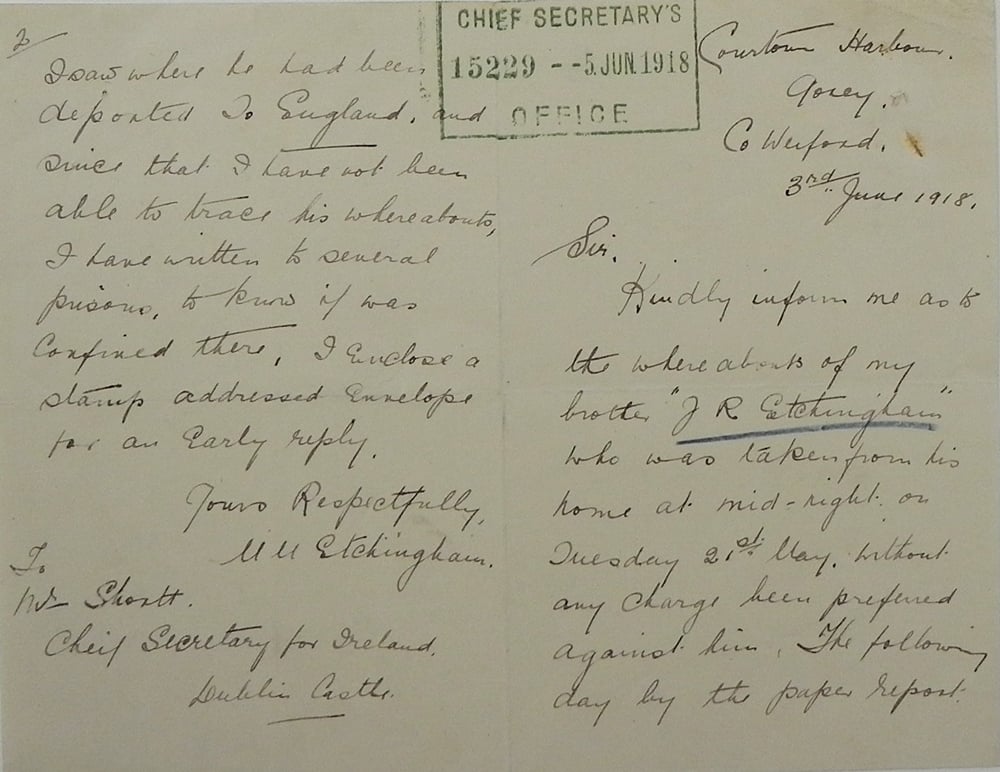 CHIEF SECRETARY'S
15229 - - 5. JUN. 1918
OFFICE
Courtown Harbour.
Gorey.
Co Wexford.
3rd. June 1918.
Sir.
Kindly inform me as to
the whereabouts of my
brother "J R Etchingham"
who was taken from his
home at mid-night. on
Tuesday 21st. May. without
any charge been preferred
against him. The following
day by the paper report.
2/
I saw where he had been
deported To England. and
since that I have not been
able to trace his whereabouts,
I have written to several
prisons, to know if was
Confined there, I Enclose a
stamp addressed Envelope
for an Early reply.
Yours Respectfully,
M M Etchingham.
To
Mr Shortt.
Cheif Secretary for Ireland.
Dublin Castle.